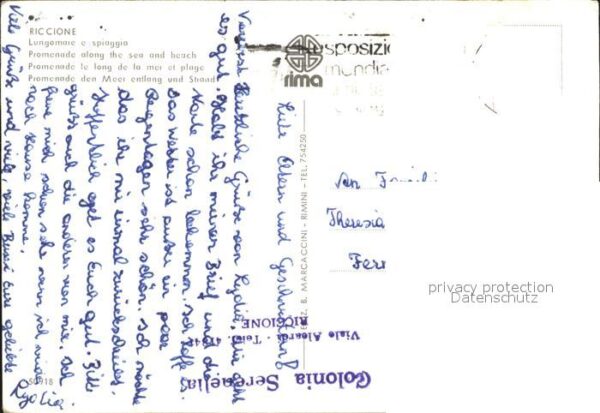 RICCIONE
Lungomare e spiaggia
Promenade along the sea and beach
Promenade le long de la mer et plage
Promenade den Meer entlang und Strand
esposizio
mondia
rima
Liebe Eltern und Geschwister
Herzliche Grüße von Lydia. Mir geht
es gut. Habt ihr meinen Brief und die
Karte schon bekommen. Ich hoffe es.
Das Wetter ist außer ein paar
Regentagen sehr schön. Ich möchte
das ihr mir einmal zurückschreibt.
Hoffentlich geht es Euch gut. Bitte
grüßt auch die anderen von mir. Ich
freue mich schon sehr wenn ich wieder
nach Hause komme.
Viele Grüße und viele, viele Bussi Eure geliebte
Lydia
An Famili
Theresia
Ferr
EDIZ. B. MARCACCINI - RIMINI - TEL. 754250
Colonia Serenella
Viale Aleardi Telef.
RICCIONE
50918
privacy protection
Datenschutz